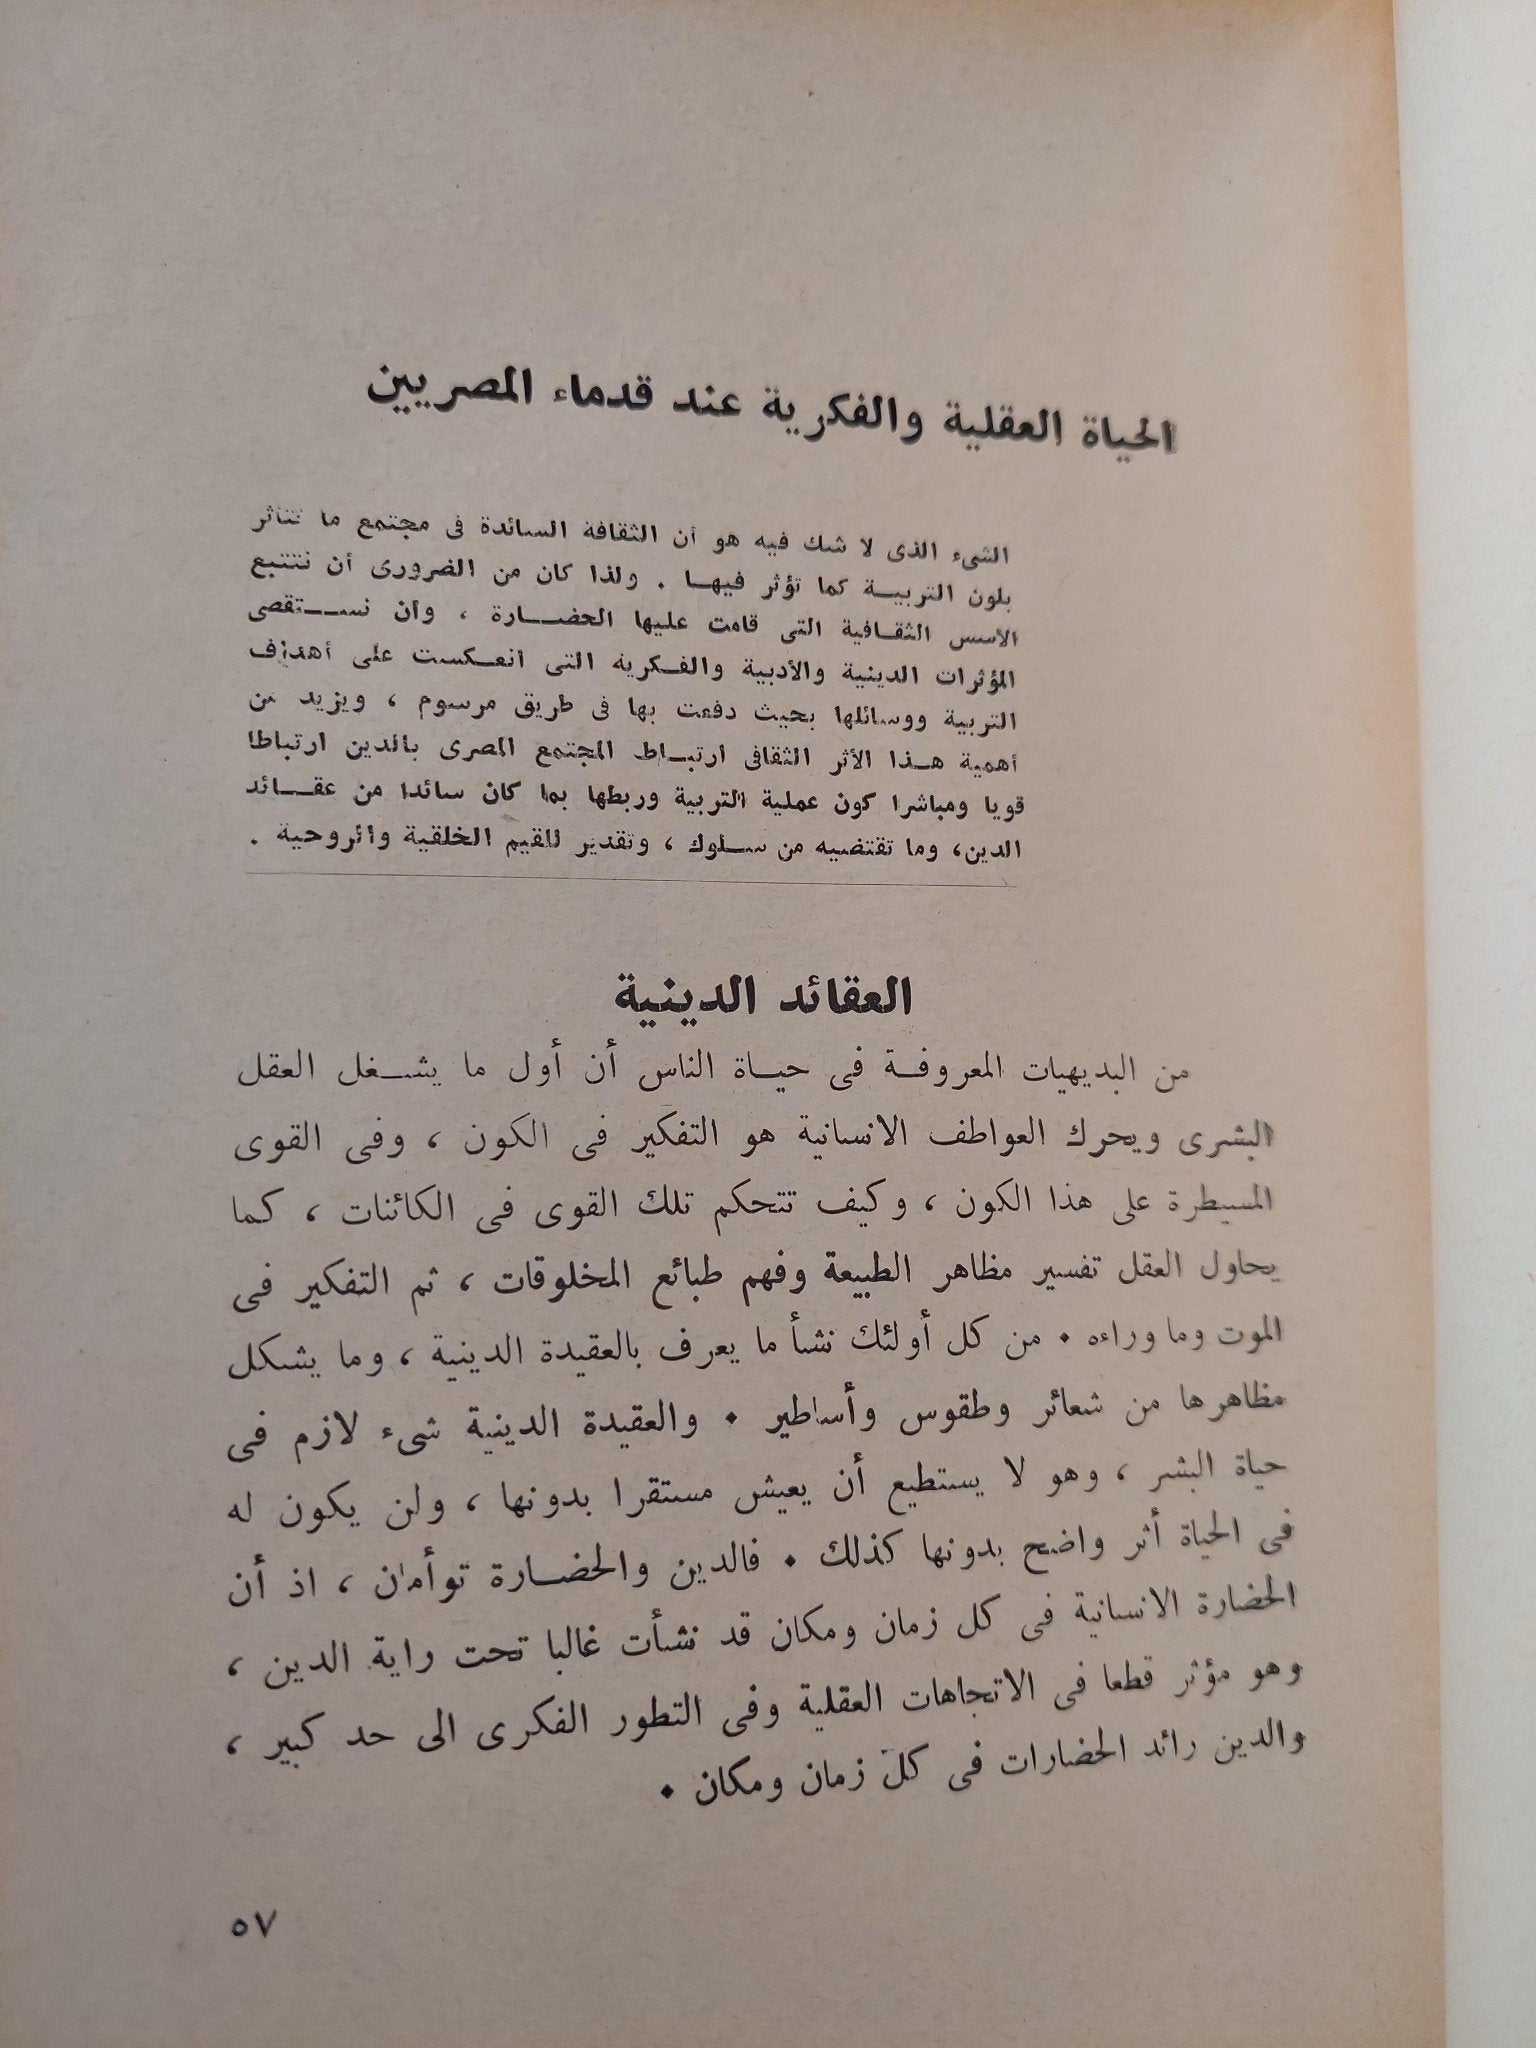 الحياة العقلية والفكرية عند قدماء المصريين
الشىء الذى لا شك فيه هو أن الثقافة السائدة فى مجتمع ما تتأثر
بلون التربيــة كما تؤثر فيهـا . ولذا كان من الضرورى أن نتتبع
الأسس الثقـافية التى قامت عليها الحضــارة ، وأن نســتقصى
المؤثرات الدينية والأدبية والفـكرية التى انعـكست على أهداف
التربية ووسائلها بحيث دفعت بها فى طريق مرسوم ، ويزيد من
أهمية هـذا الأثر الثقافى ارتبـاط المجتمع المصرى بالدين ارتباطا
قويا ومباشرا كون عملية التربية وربطها بما كان سائدا من عقــائد
الدين، وما تقتضيه من سـلوك ، وتقدير للقيم الخلقية والروحية .
العقائد الدينية
من البديهيات المعروفـة فى حيـاة الناس أن أول ما يشـغل العقل
البشرى ويحرك العواطف الانسانية هو التفكير فى الكون ، وفى القوى
المسيطرة على هذا الكون ، وكيف تتحكم تلك القوى فى الكائنات ، كما
يحاول العقل تفسير مظاهر الطبيعة وفهم طبائع المخلوقات ، ثم التفكير فى
الموت وما وراءه . من كل أولئك نشأ ما يعرف بالعقيدة الدينية ، وما يشكل
مظاهرها من شعائر وطقوس وأساطير . والعقيدة الدينية شىء لازم فى
حياة البشر ، وهو لا يستطيع أن يعيش مستقرا بدونها ، ولن يكون له
فى الحياة أثر واضح بدونها كذلك . فالدين والحضــارة توأمان ، اذ أن
الحضارة الانسانية فى كل زمان ومكان قد نشأت غالبا تحت راية الدين ،
وهو مؤثر قطعا فى الاتجاهات العقلية وفى التطور الفكرى الى حد كبير ،
والدين رائد الحضارات فى كل زمان ومكان .
٥٧